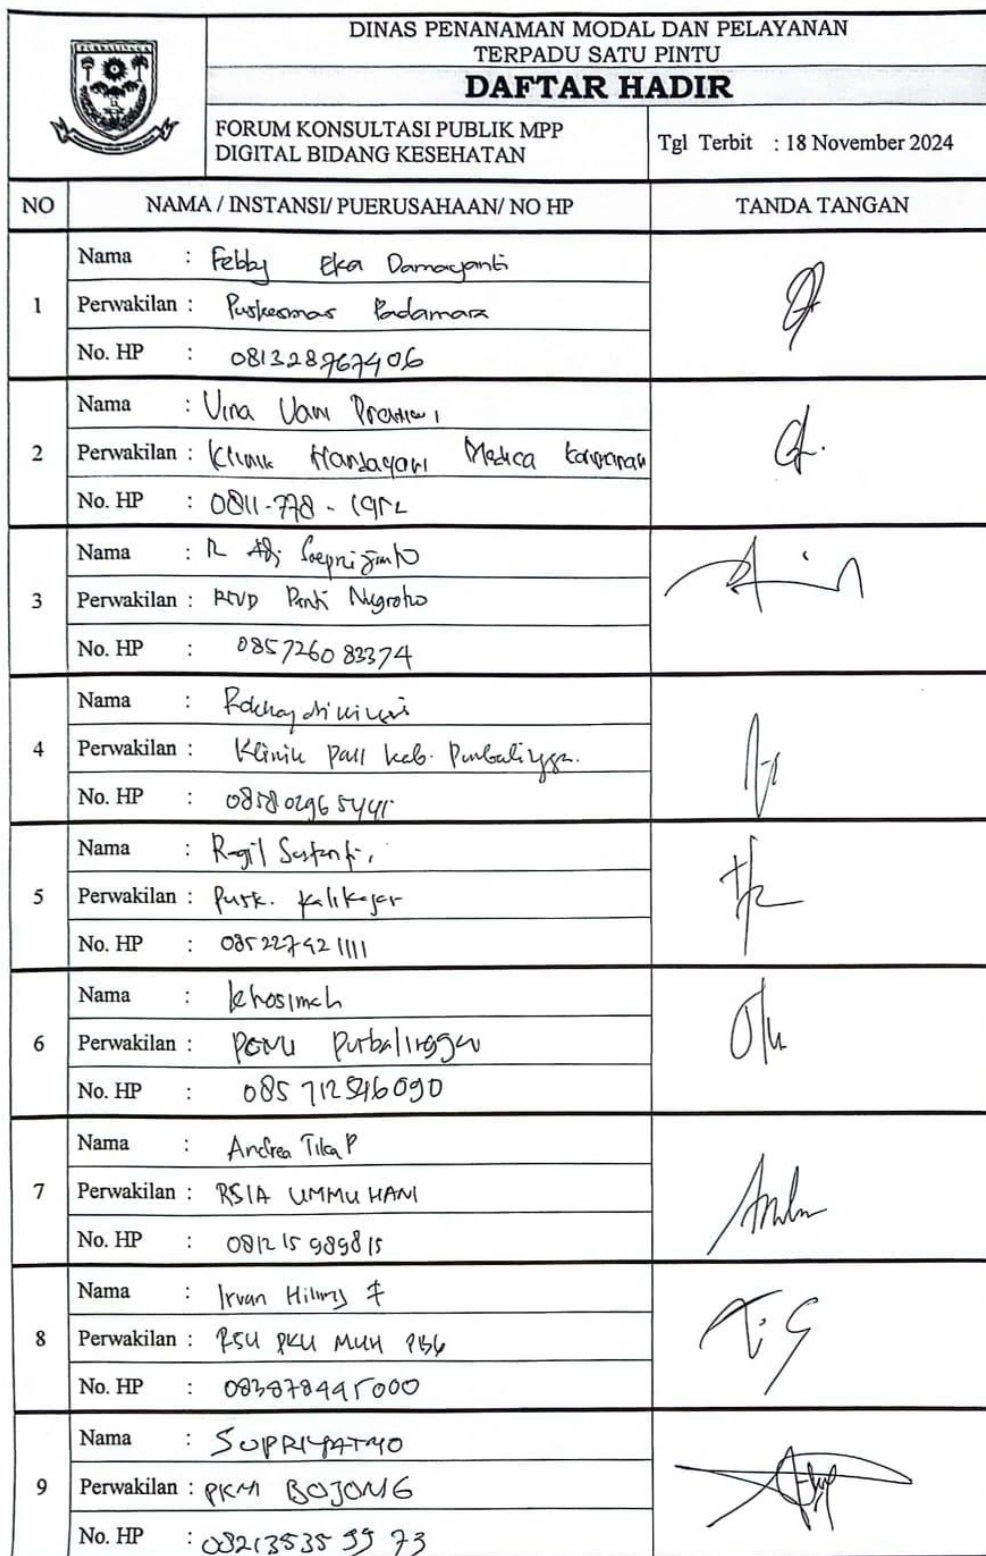 PURBALINGGA
DINAS PENANAMAN MODAL DAN PELAYANAN
TERPADU SATU PINTU
DAFTAR HADIR
FORUM KONSULTASI PUBLIK MPP
DIGITAL BIDANG KESEHATAN
Tgl Terbit : 18 November 2024
NO NAMA / INSTANSI/ PUERUSAHAAN/ NO HP TANDA TANGAN
1
Nama : Febby Eka Damayanti
Perwakilan : Puskesmas Padamara
No. HP : 081328767406
2
Nama : Vina Vani
Perwakilan : Klinik Handayani Medica
No. HP : 0811-778-
3
Nama : R Adj
Perwakilan : RSUD Panti Nugroho
No. HP : 085726083374
4
Nama :
Perwakilan : Klinik Pall kab. Purbalingga.
No. HP :
5
Nama : Ragil
Perwakilan : Pusk. Kalikajar
No. HP : 085227421111
6
Nama : Khosimah
Perwakilan : Purbalingga
No. HP :
7
Nama : Andrea Tika P
Perwakilan : RSIA UMMU HANI
No. HP : 081215989815
8
Nama : Irvan Hilmy F
Perwakilan : RSU PKU MUH PBG
No. HP :
9
Nama : SUPRIYATNO
Perwakilan : PKM BOJONG
No. HP : 082135359973